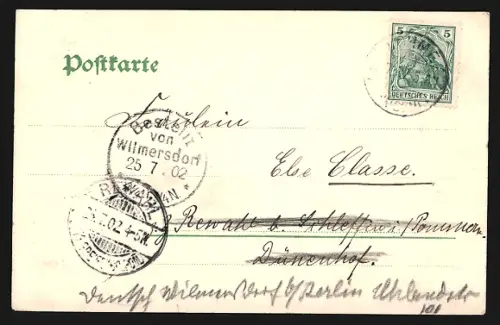 5 5
DEUTSCHES REICH
Postkarte
Fräulein
Bestellt
von
Wilmersdorf
25 7. 02
Else Classe.
REWAHL
7.02 4-5N.
Rewahl b. Schleffin/Pommern.
Dünenhof.
Deutsch Wilmersdorf b/Berlin Uhlandstr
101